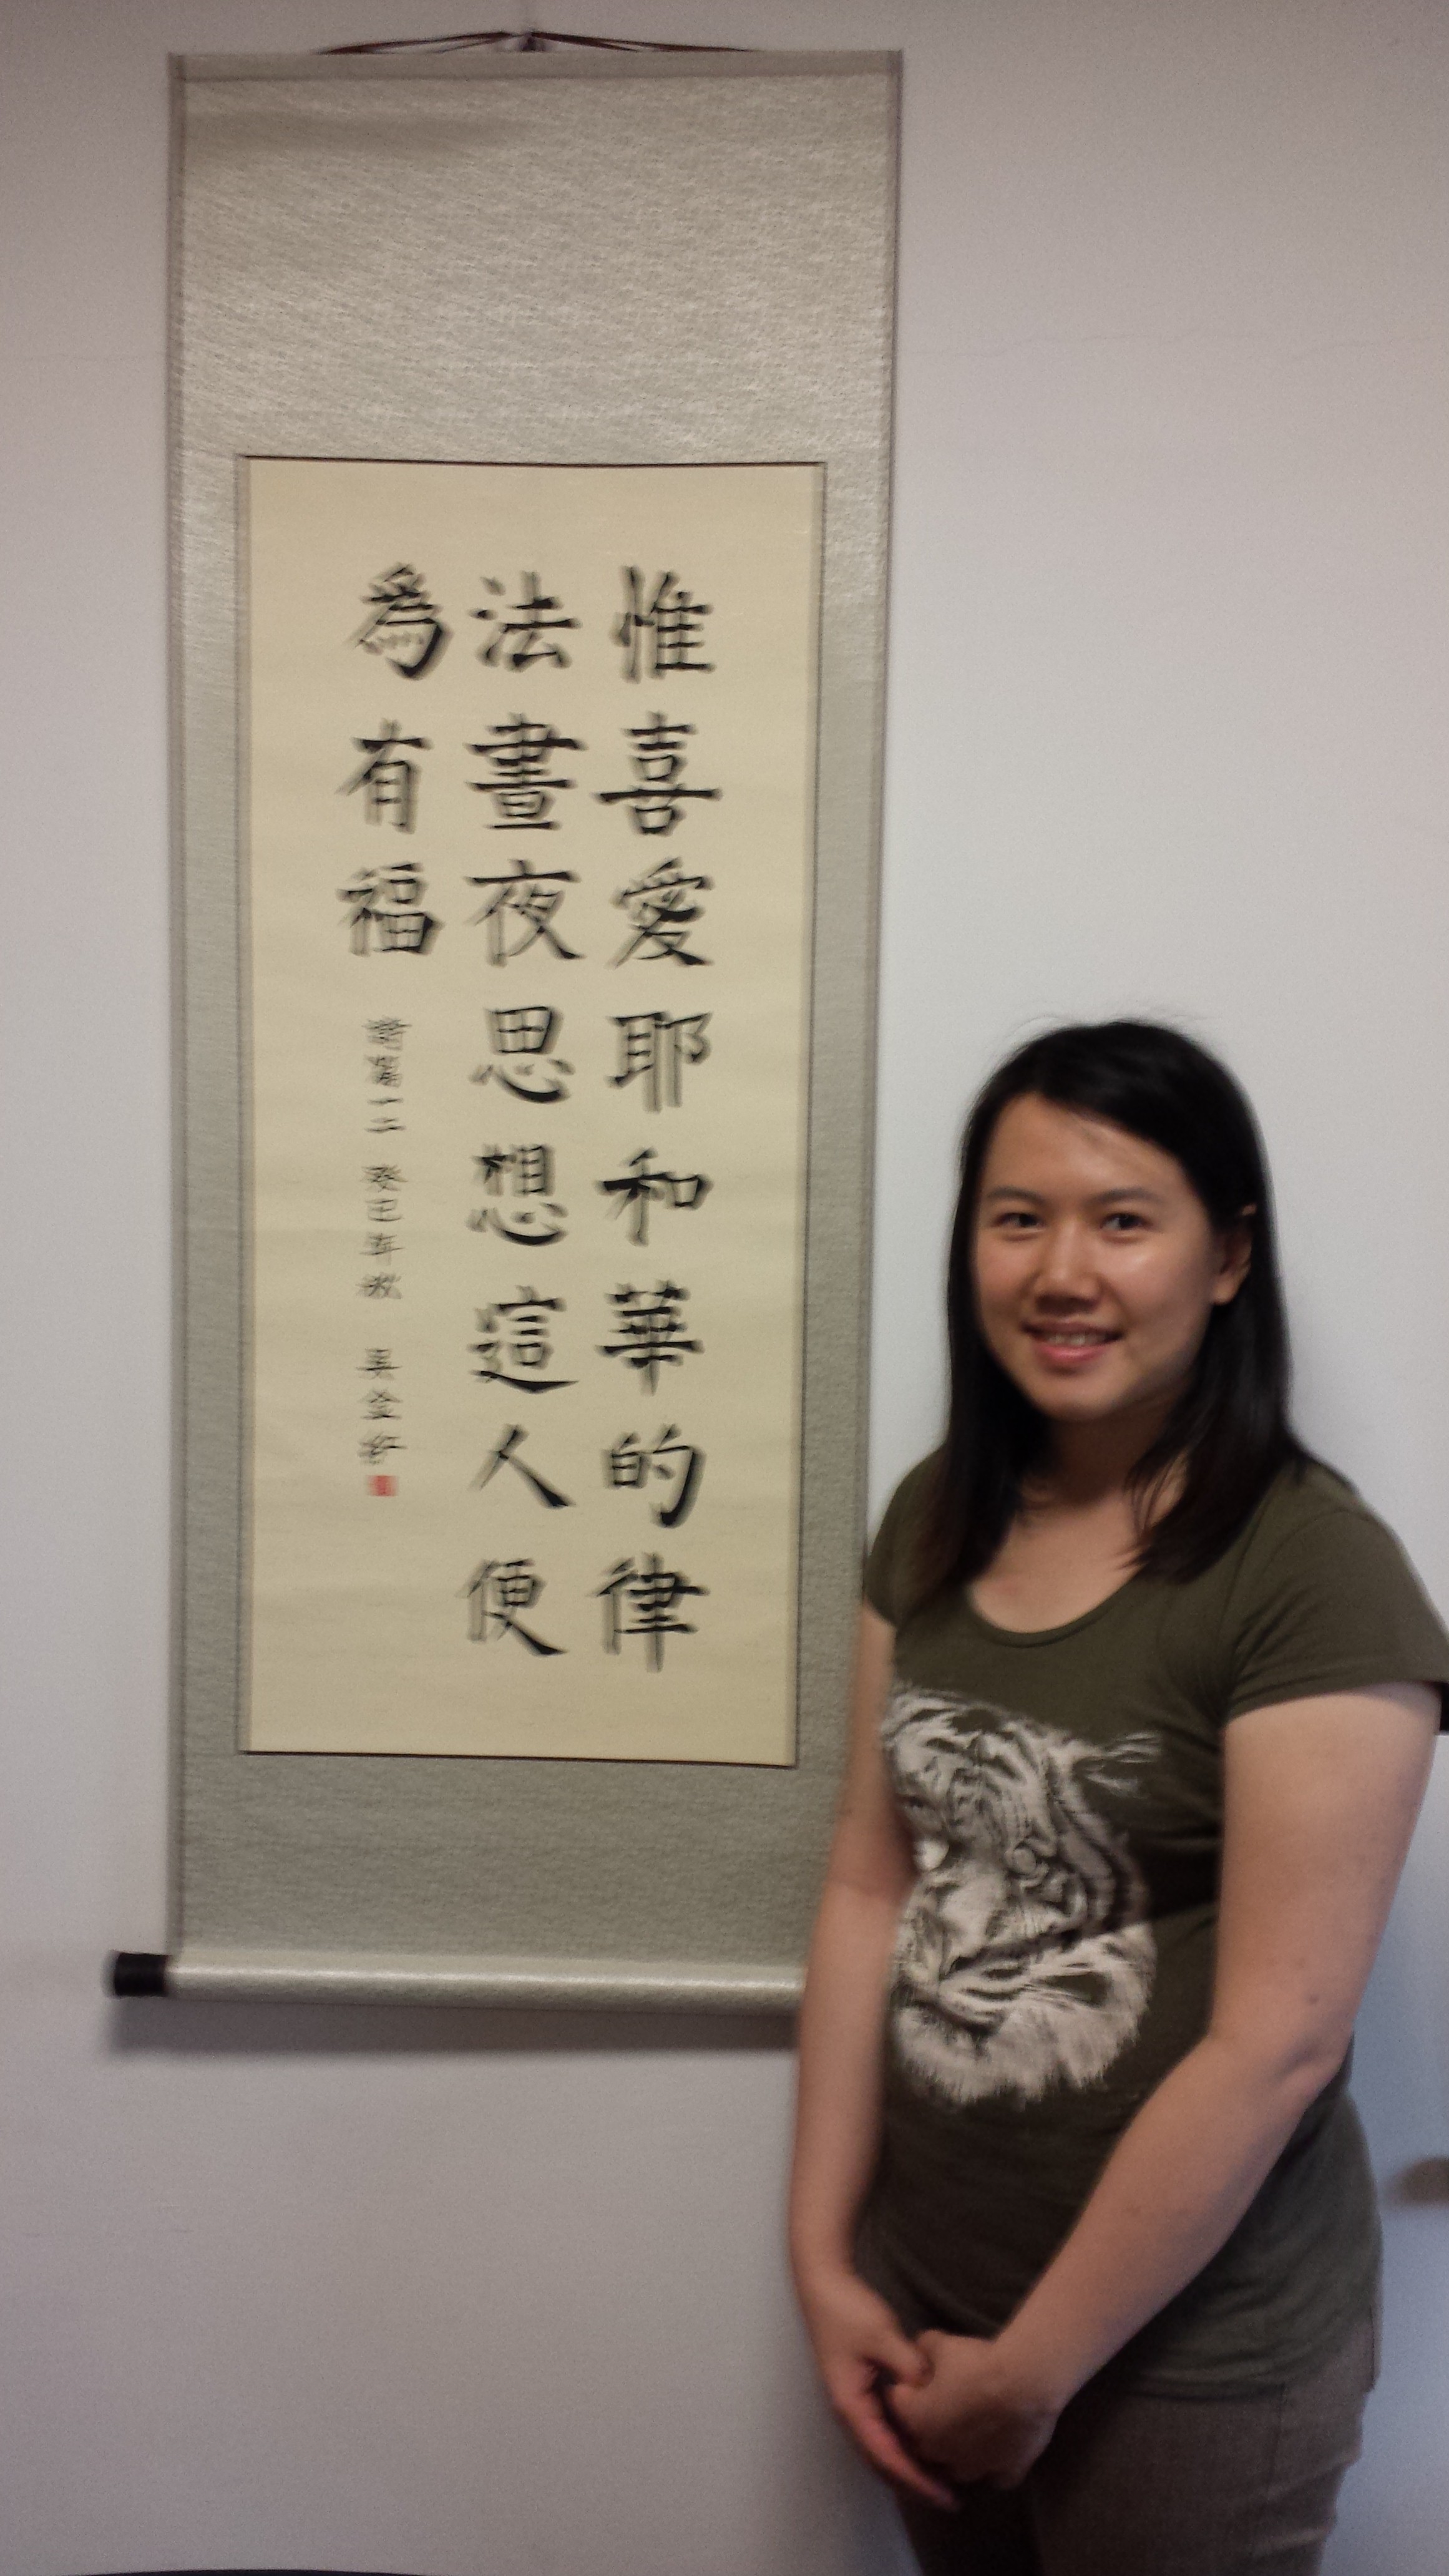 惟喜愛耶和華的律
法晝夜思想這人便
為有福
詩篇一 二 癸巳年秋 吳金